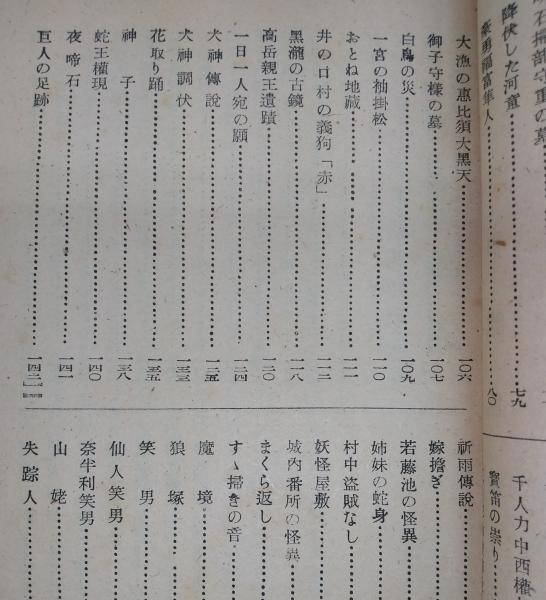 降伏した河童……七九
豪勇福富隼人……八〇
大漁の惠比須大黑天……一〇六
御子守樣の墓……一〇七
白鳥の災……一〇九
一宮の袖掛松……一一〇
おとね地藏……一一一
井の口村の義狗「赤」……一一二
黑瀧の古鏡……一一八
高岳親王遺蹟……一二〇
一日一人宛の願……一二四
犬神傳說……一二五
犬神調伏……一三三
花取り踊……一三五
神子……一三八
蛇王權現……一四〇
夜啼石……一四一
巨人の足跡……一四二
千人力中西權
寶笛の祟り……
祈雨傳說……
嫁擔ぎ……
若藤池の怪異……
姉妹の蛇身……
村中盜賊なし……
妖怪屋敷……
城內番所の怪異……
まくら返し……
すゝ掃きの音……
魔境……
狼塚……
笑男……
仙人笑男……
奈半利笑男……
山姥……
失踪人……